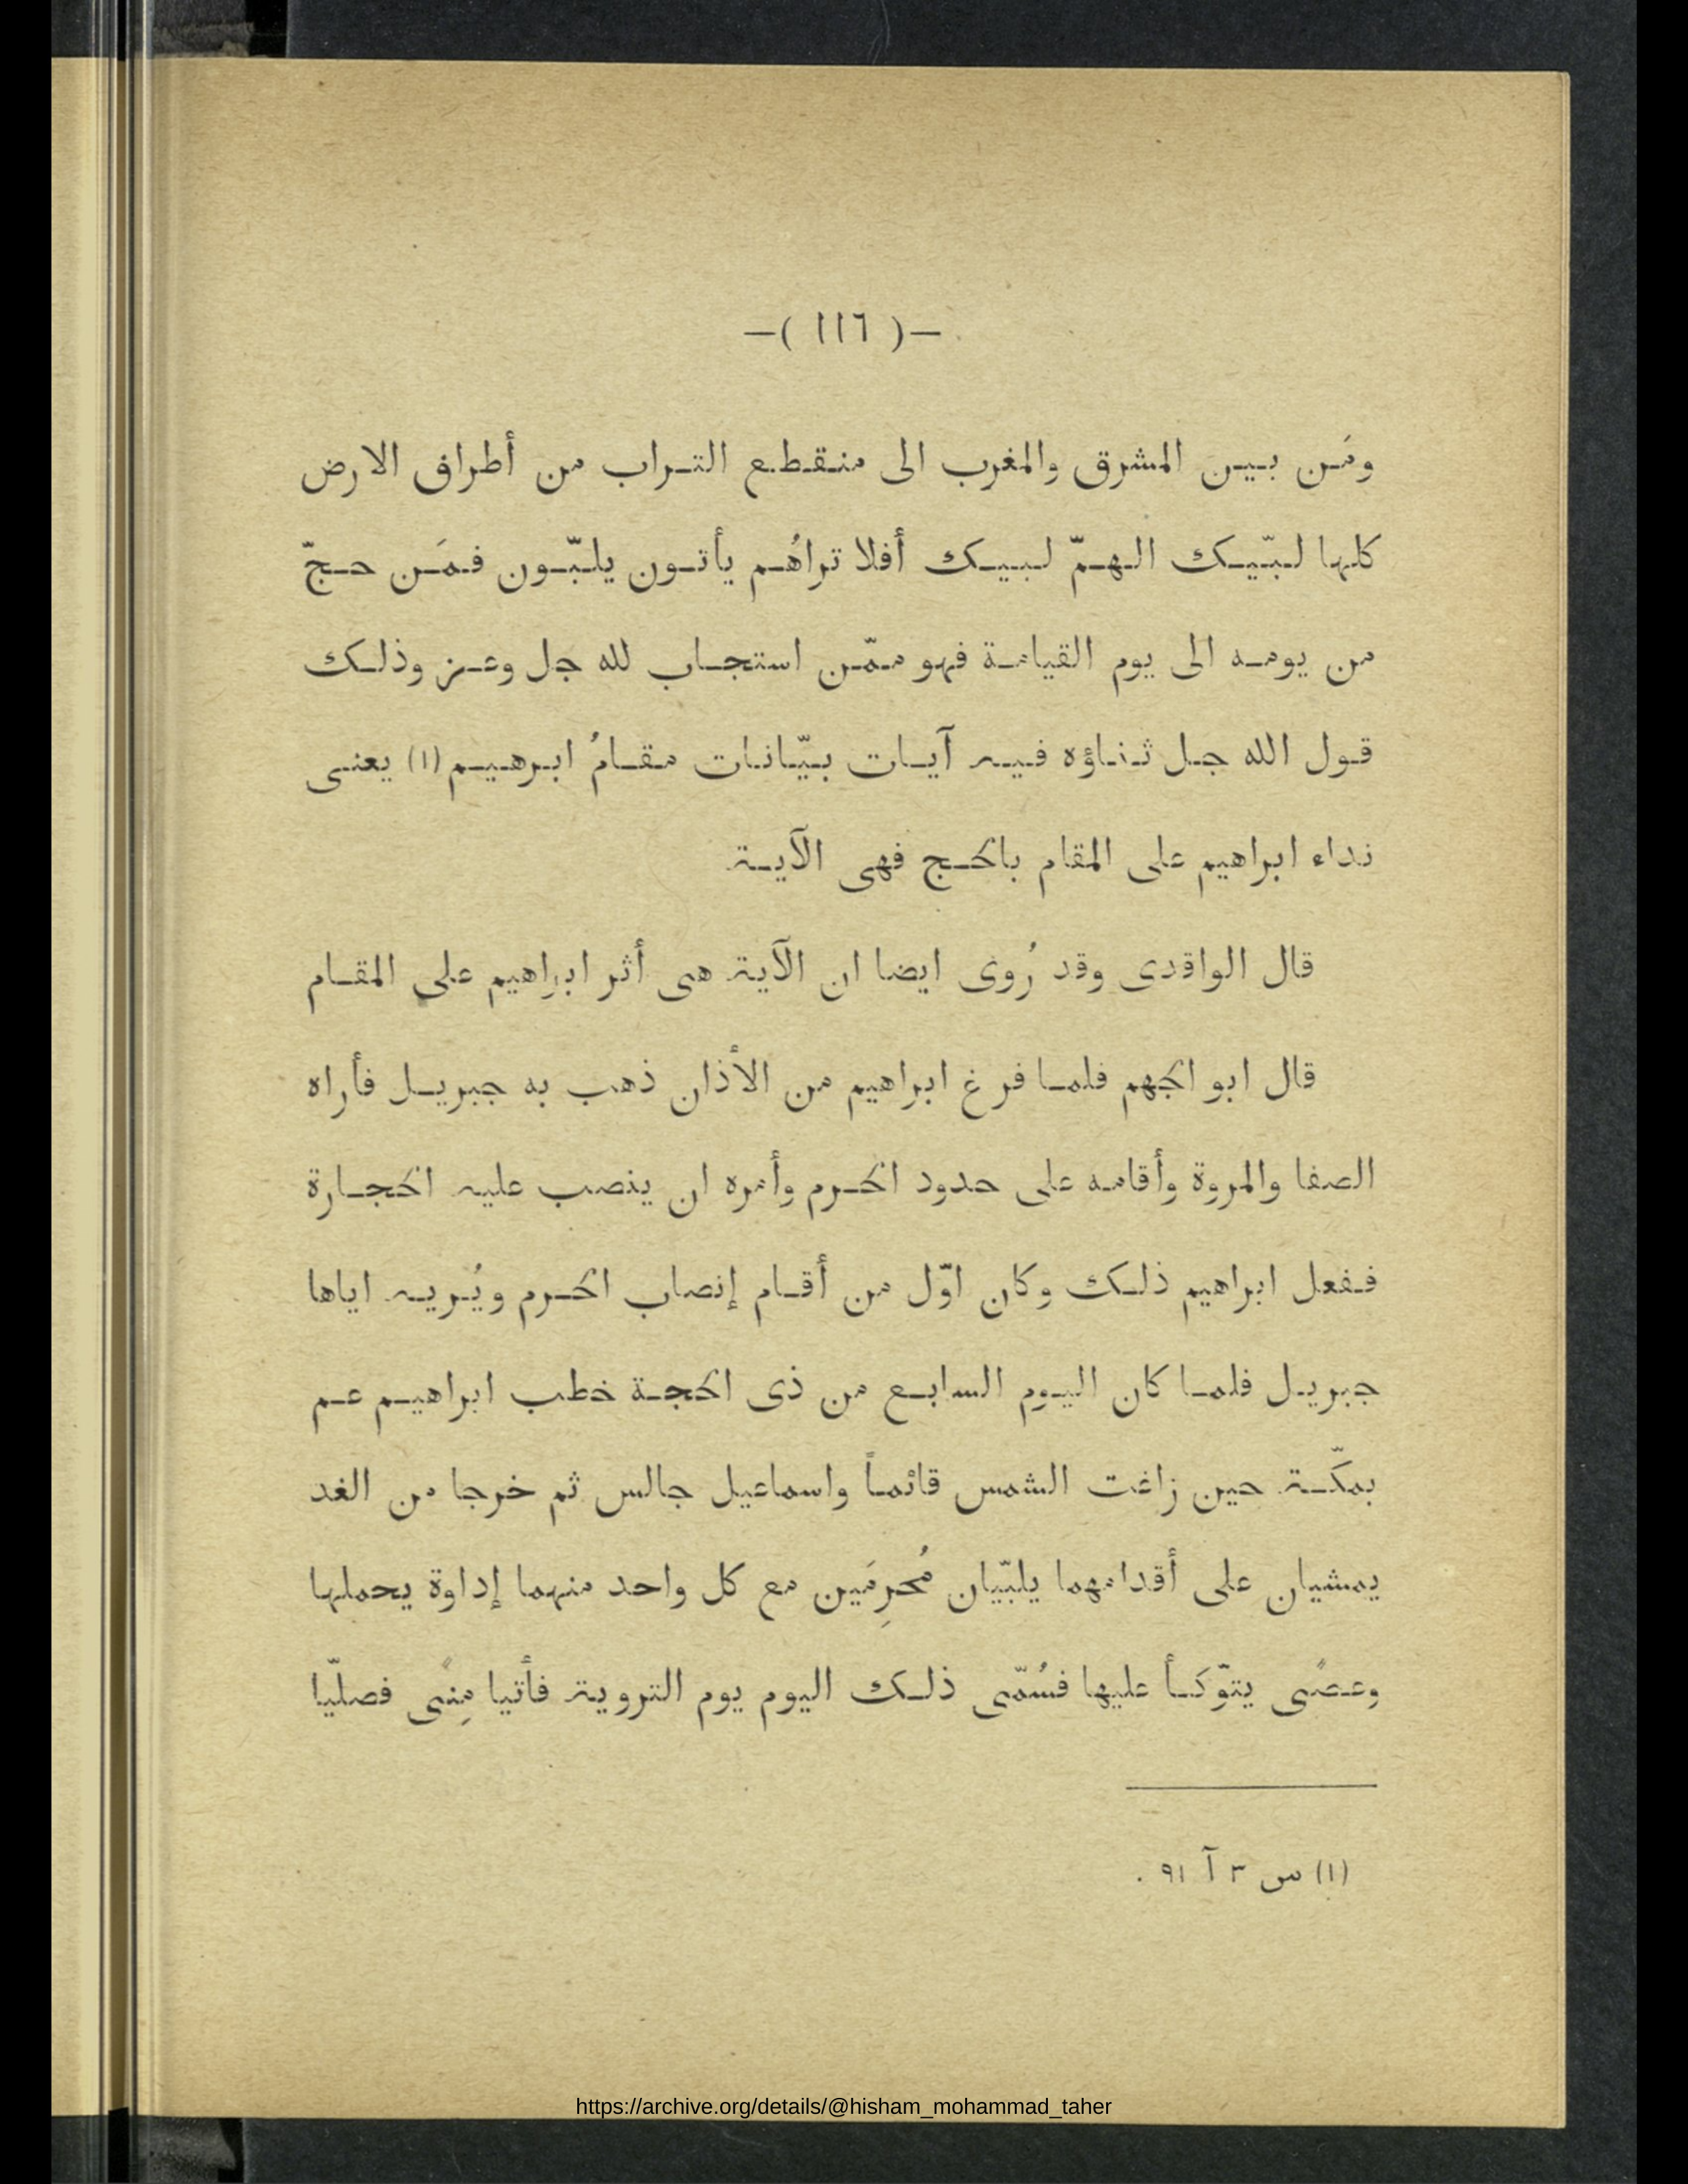 —( ١١٦ )—
ومَن بين المشرق والمغرب الى منقطع التراب من أطراف الارض
كلها لبّيك الهمّ لبيك أفلا تراهُم يأتون يلبّون فمَن حجّ
من يومه الى يوم القيامة فهو ممّن استجاب لله جل وعز وذلك
قول الله جل ثناؤه فيه آيات بيّانات مقامُ ابرهيم (١) يعنى
نداء ابراهيم على المقام بالحج فهى الآية
قال الواقدى وقد رُوى ايضا ان الآية هى أثر ابراهيم على المقام
قال ابو الجهم فلما فرغ ابراهيم من الأذان ذهب به جبريل فأراه
الصفا والمروة وأقامه على حدود الحرم وأمره ان ينصب عليه الحجارة
ففعل ابراهيم ذلك وكان اوّل من أقام إنصاب الحرم ويُريه اياها
جبريل فلما كان اليوم السابع من ذى الحجة خطب ابراهيم عم
بمكّة حين زاغت الشمس قائماً واسماعيل جالس ثم خرجا من الغد
يمشيان على أقدامهما يلبّيان مُحرِمَين مع كل واحد منهما إداوة يحملها
وعصًى يتوّكأ عليها فسُمّى ذلك اليوم يوم التروية فأتيا مِنًى فصلّيا
(١) س ٣ آ ٩١ .
https://archive.org/details/@hisham_mohammad_taher